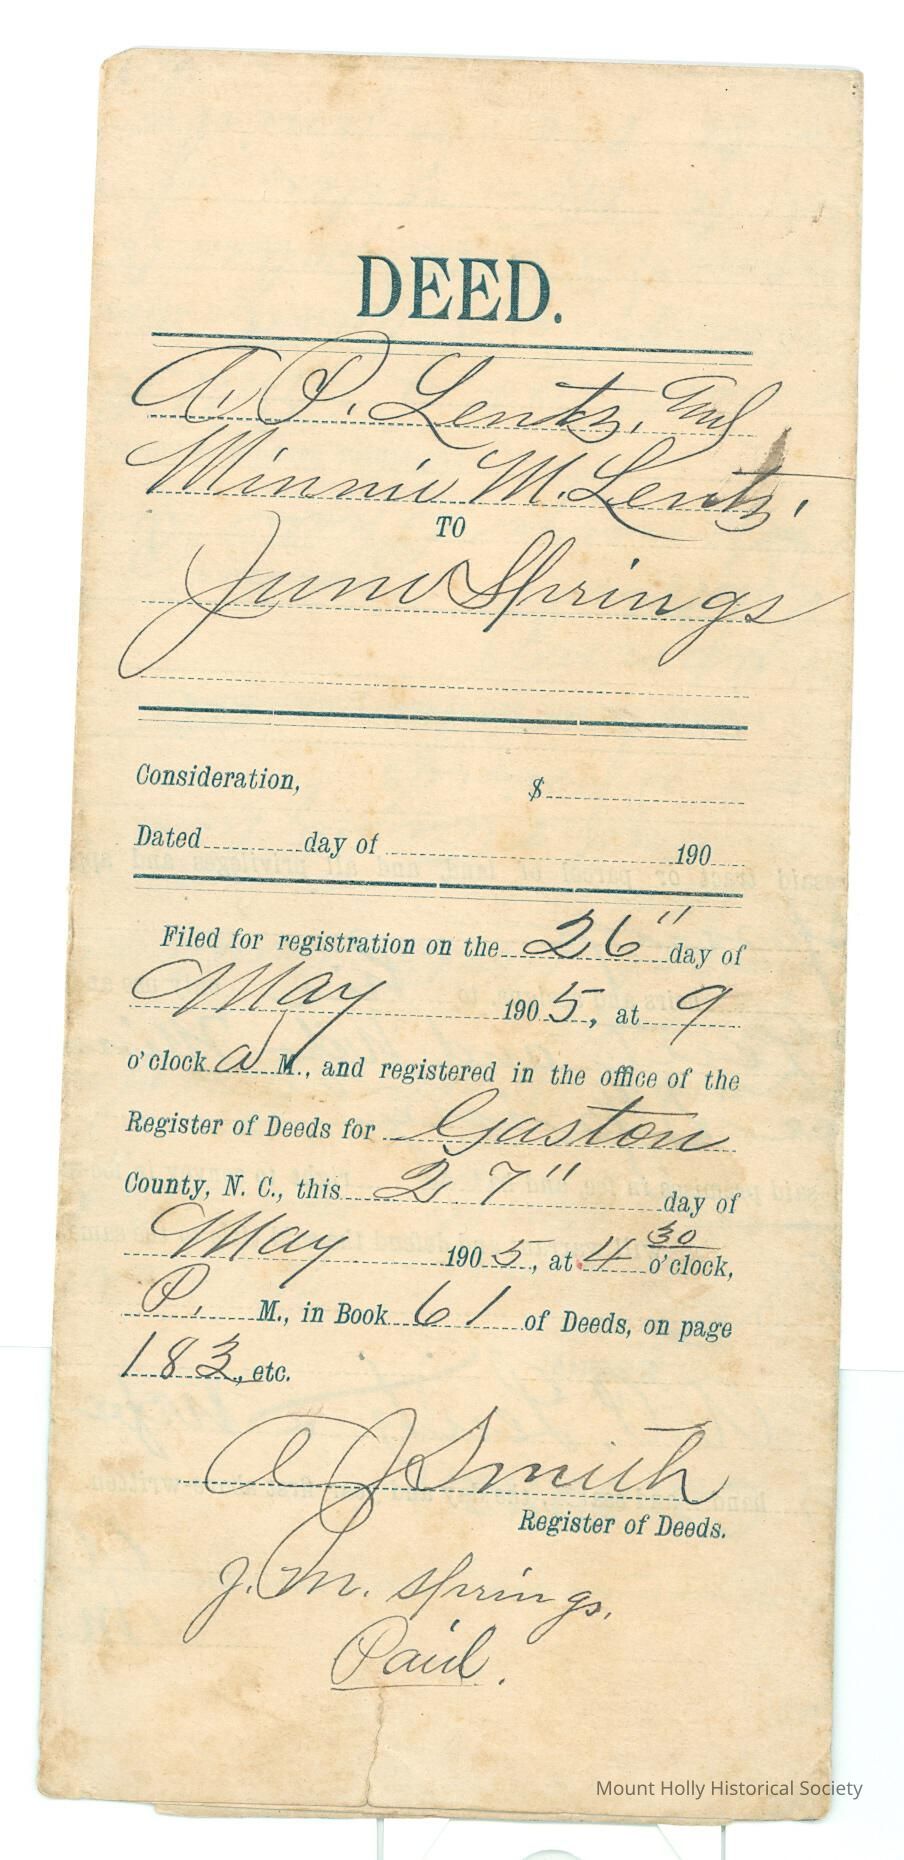 DEED.
A. P. Lentz, and
Minnie M. Lentz,
TO
June Springs
Consideration, $
Dated day of 190
Filed for registration on the 26" day of
May 1905, at 9
o'clock a M., and registered in the office of the
Register of Deeds for Gaston
County, N. C., this 27" day of
May 1905, at 4 30 o'clock,
P. M., in Book 61 of Deeds, on page
183, etc.
Smith
Register of Deeds.
J. M. Springs.
Paid.
Mount Holly Historical Society